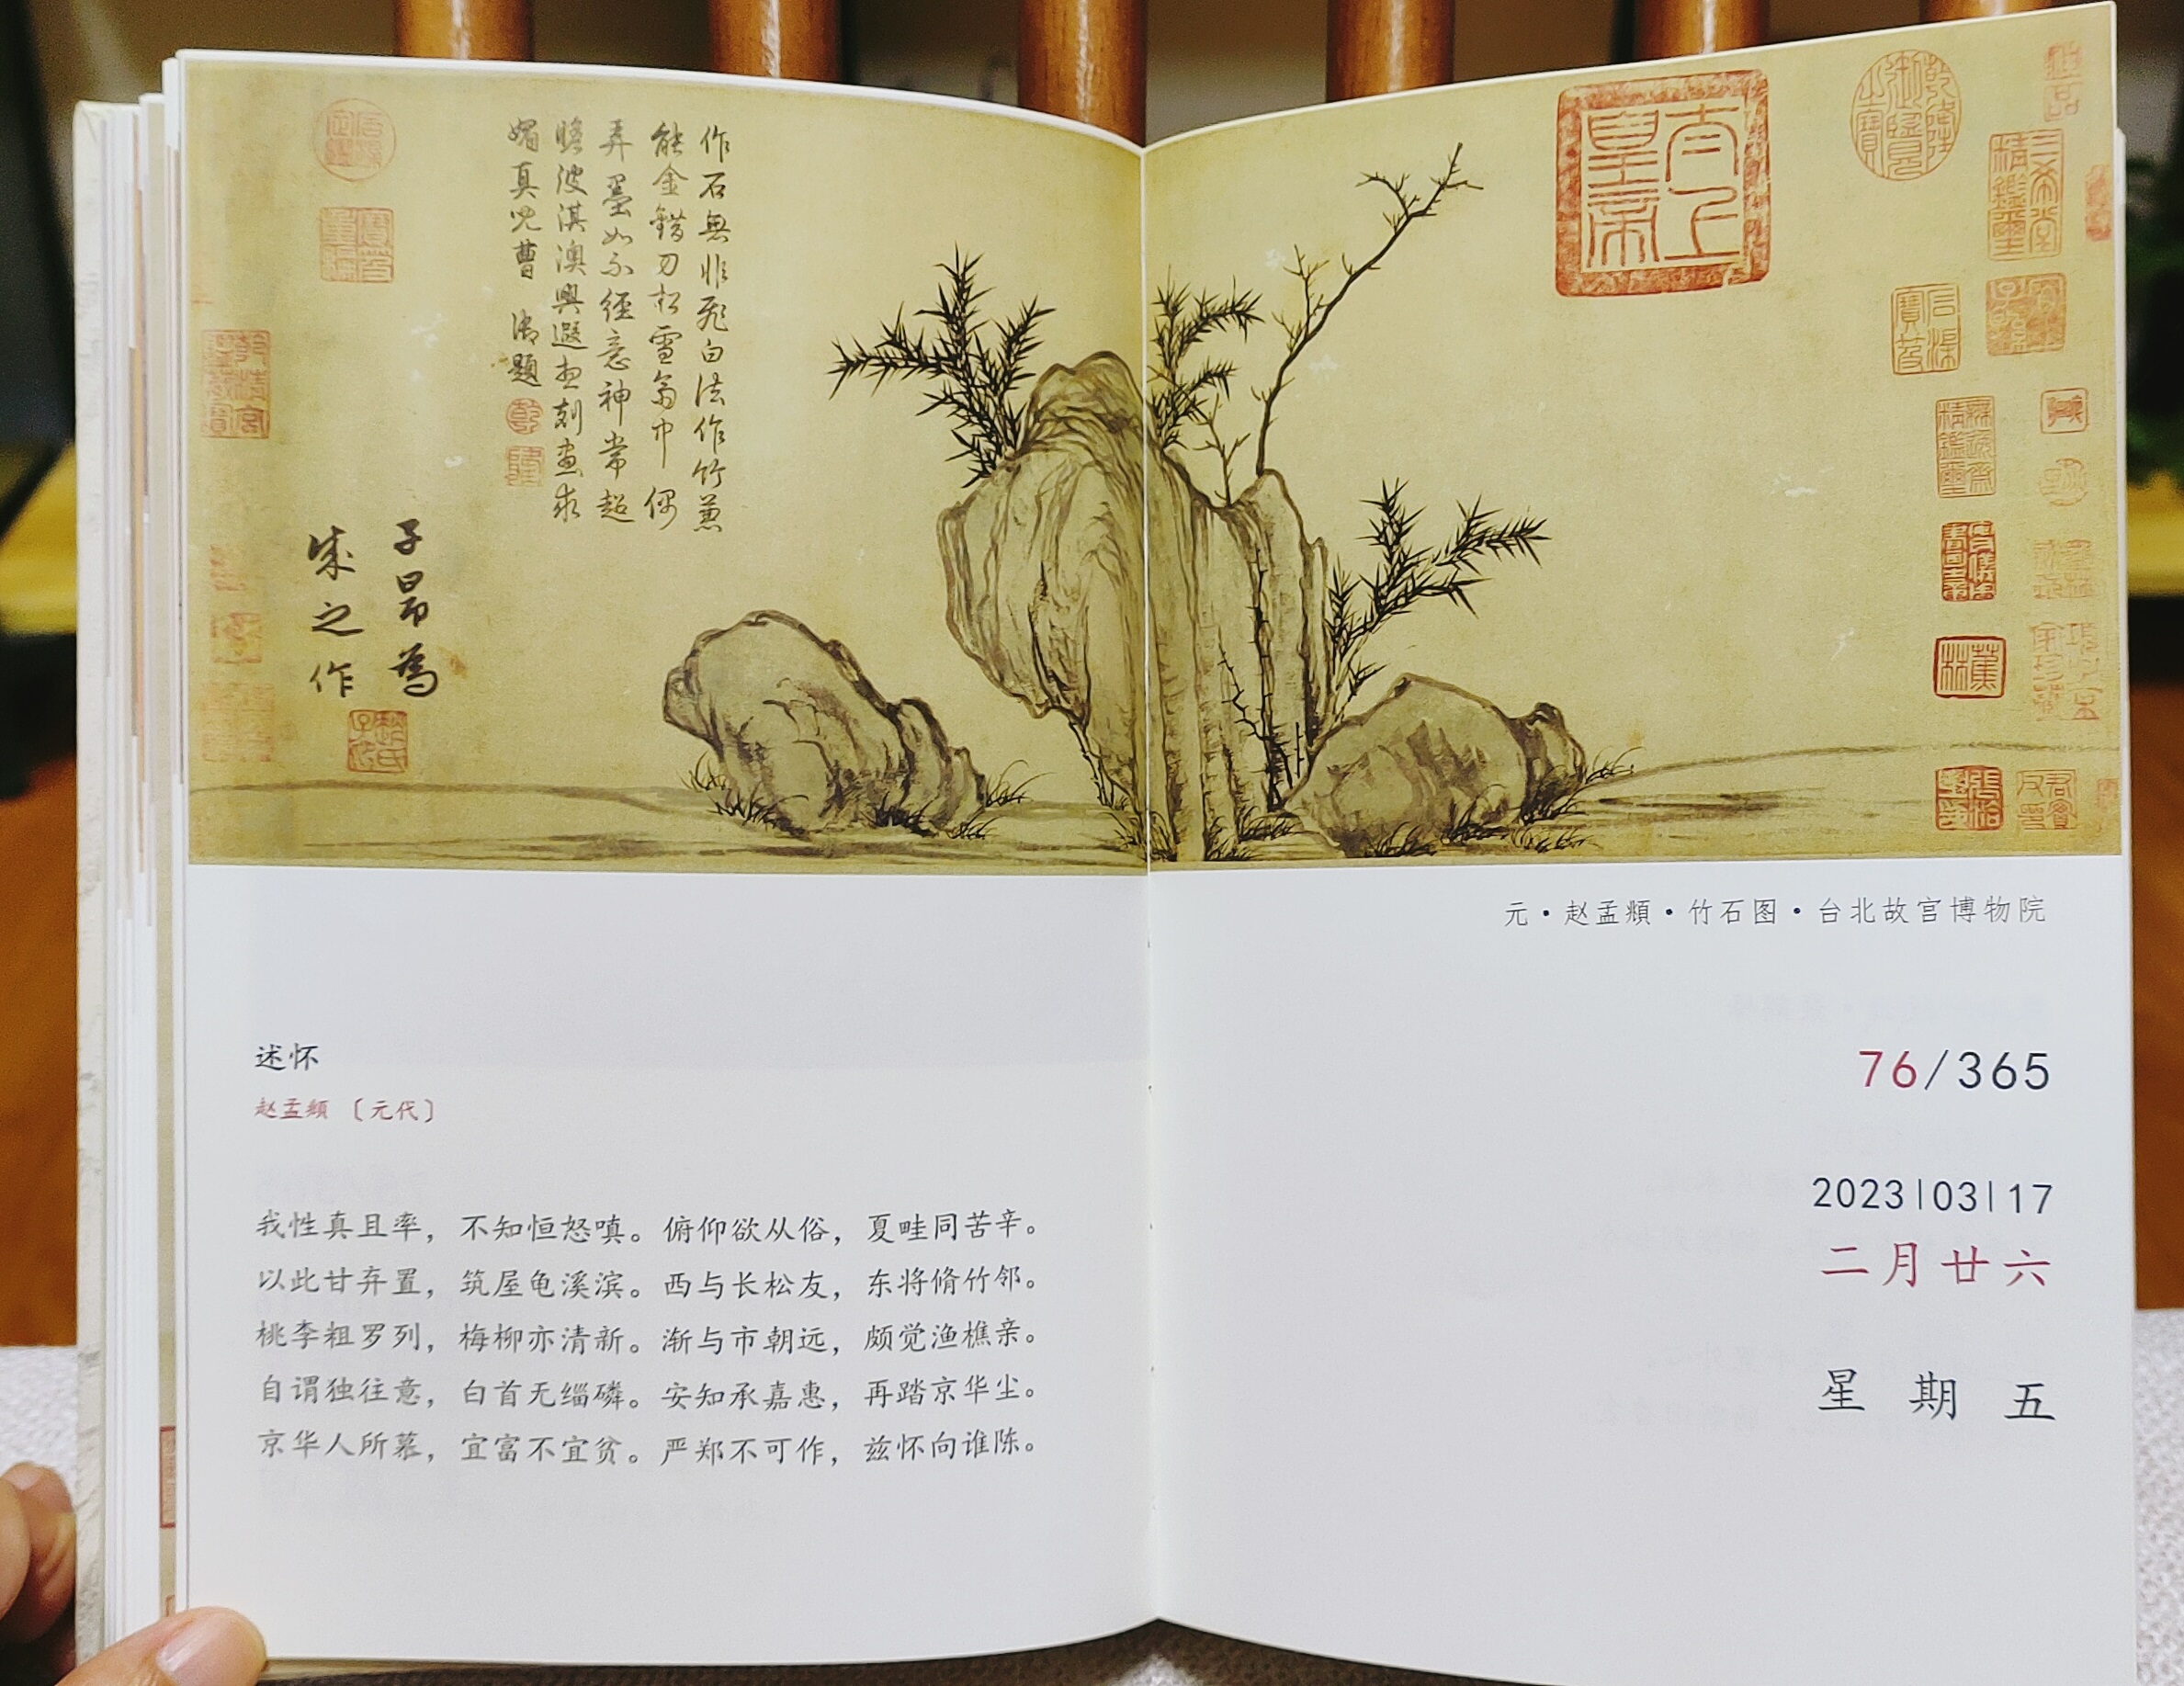 作石無非飛白法作竹兼
能金錯刀松雪翁中偶
弄墨如不經意神常超
瞻波淇澳興遐想刻畫求
媚真兒曹 御題
乾
隆
子昂為
成之作
趙氏子昂
太上皇帝
乾隆御覽之寶
三希堂精鑑璽
宜子孫
石渠寶笈
蕉林
元·赵孟頫·竹石图·台北故宫博物院
述怀
赵孟頫〔元代〕
我性真且率，不知恒怒嗔。俯仰欲从俗，夏畦同苦辛。
以此甘弃置，筑屋龟溪滨。西与长松友，东将脩竹邻。
桃李粗罗列，梅柳亦清新。渐与市朝远，颇觉渔樵亲。
自谓独往意，白首无缁磷。安知承嘉惠，再踏京华尘。
京华人所慕，宜富不宜贫。严郑不可作，兹怀向谁陈。
76/365
2023|03|17
二月廿六
星期五